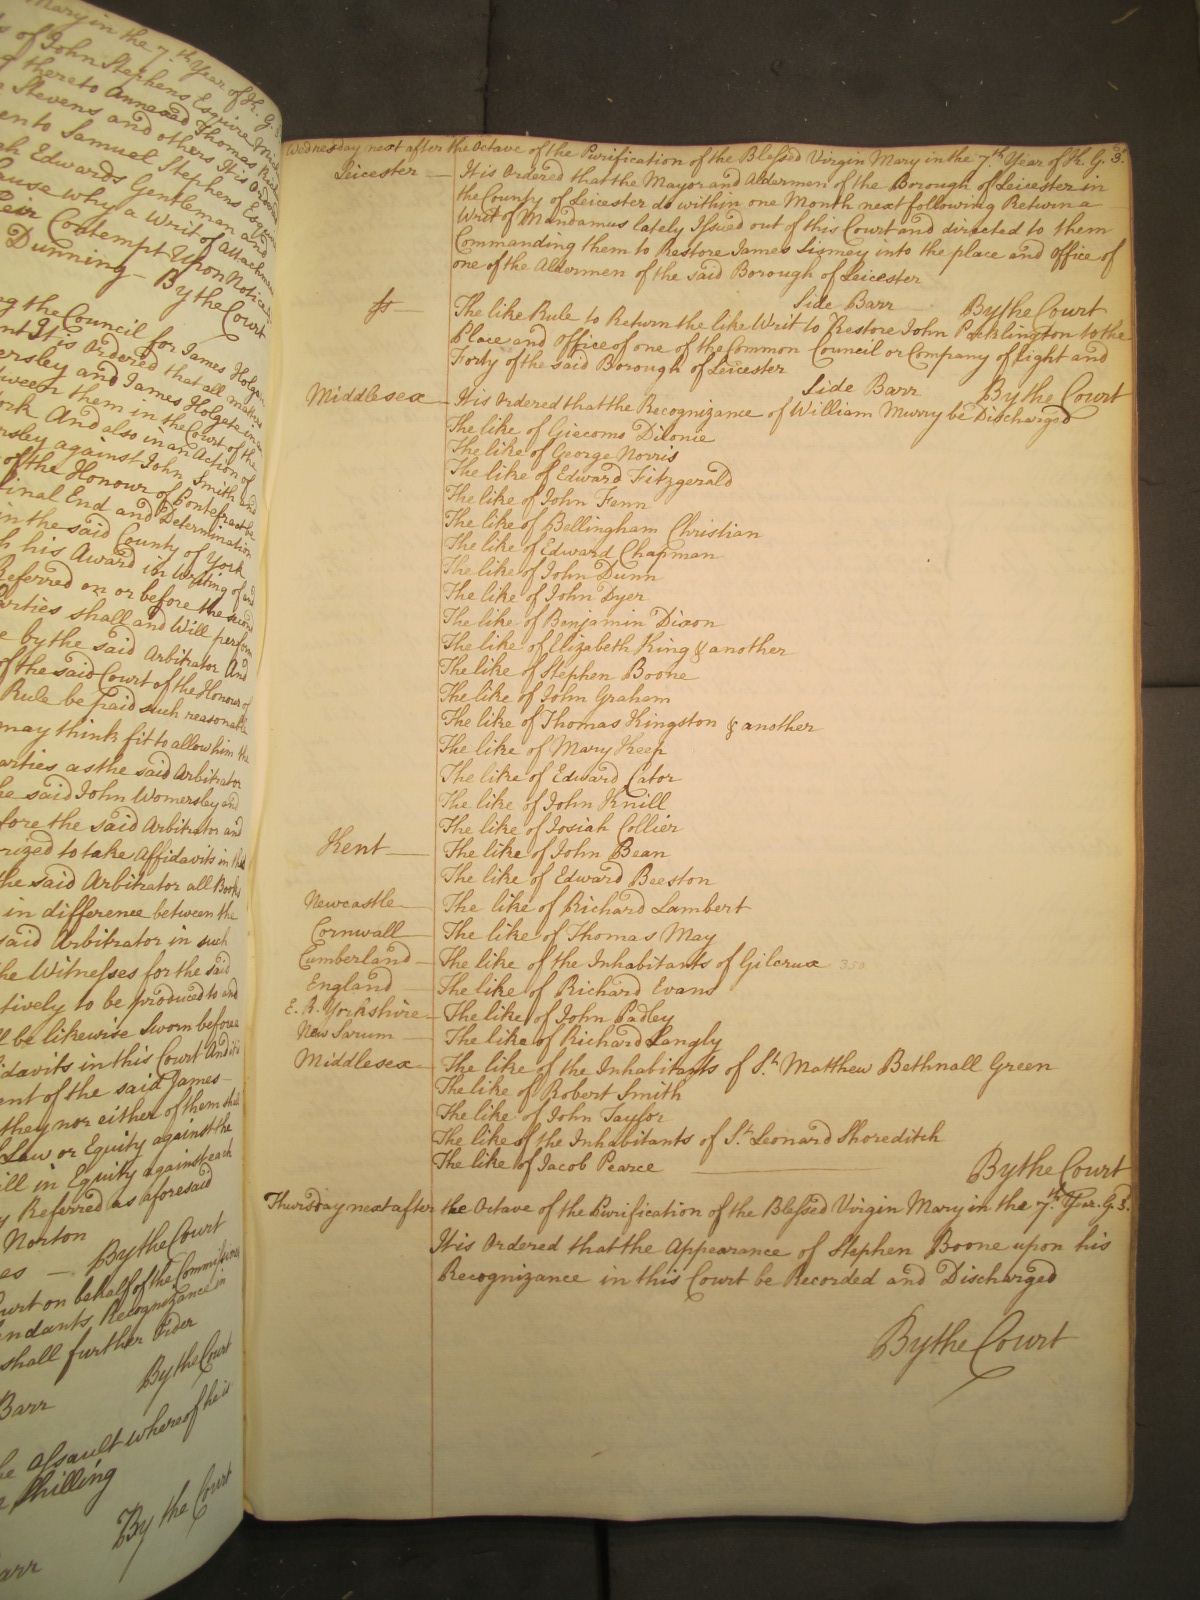 Mary in the 7.th Year of K. G. 3
of John Stephens Esquire
thereto Annexed Thomas
Stevens and others It is
Samuel Stephens Esq
Edwards Gentleman and
cause why a Writ of attachment
their Contempt Upon Notice
Dunning — By the Court
the Council for James Holgate
It is Ordered that all matters
and James Holgate in an
between them in the Court of the
York And also in an Action of
against John Smith and
of the Honour of Pontefract be
final End and Determination
in the said County of York
his Award in Writing of and
Referred on or before the second
parties shall and Will perform
by the said Arbitrator And
of the said Court of the Honour of
Rule be paid such reasonable
may think fit to allow him the
parties as the said Arbitrator
the said John Womersley and
before the said Arbitrator and
to take Affidavits in this
the said Arbitrator all Books
in difference between the
said Arbitrator in such
the Witnesses for the said
to be produced to and
be likewise Sworn before
affidavits in this Court And it is
of the said James
they nor either of them shall
Law or Equity against the
Bill in Equity against each
Referred as aforesaid
Norton
By the Court
Court on behalf of the Commissioners
Recognizance in
shall further Order
By the Court
Barr
Assault whereof he is
Shilling
By the Court
Wednesday next after the Octave of the Purification of the Blessed Virgin Mary in the 7.th Year of K. G. 3.
Leicester — It is Ordered that the Mayor and Aldermen of the Borough of Leicester in
the County of Leicester do within one Month next following Return a
Writ of Mandamus lately Issued out of this Court and directed to them
Commanding them to Restore James Sismey into the place and office of
one of the Aldermen of the said Borough of Leicester
Side Barr By the Court
The like Rule to Return the like Writ to Restore John Pocklington to the
Place and Office of one of the Common Council or Company of Eight and
Forty of the said Borough of Leicester
Side Barr By the Court
Middlesex — It is Ordered that the Recognizance of William Murry be Discharged
The like of Giacomo Dilonie
The like of George Norris
The like of Edward Fitzgerald
The like of John Fenn
The like of Bellingham Christian
The like of Edward Chapman
The like of John Dunn
The like of John Dyer
The like of Benjamin Dixon
The like of Elizabeth King & another
The like of Stephen Boone
The like of John Graham
The like of Thomas Kingston & another
The like of Mary Keep
The like of Edward Cator
The like of John Knill
The like of Josiah Collier
Kent — The like of John Bean
The like of Edward Beeston
Newcastle — The like of Richard Lambert
Cornwall — The like of Thomas May
Cumberland — The like of the Inhabitants of Gilcrux 350
England — The like of Richard Evans
E. R. Yorkshire — The like of John Padley
New Sarum — The like of Richard Langly
Middlesex — The like of the Inhabitants of S.t Matthew Bethnall Green
The like of Robert Smith
The like of John Taylor
The like of the Inhabitants of S.t Leonard Shoreditch
The like of Jacob Pearce — By the Court
Thursday next after the Octave of the Purification of the Blessed Virgin Mary in the 7.th Year. G. 3.
It is Ordered that the Appearance of Stephen Boone upon his
Recognizance in this Court be Recorded and Discharged
By the Court